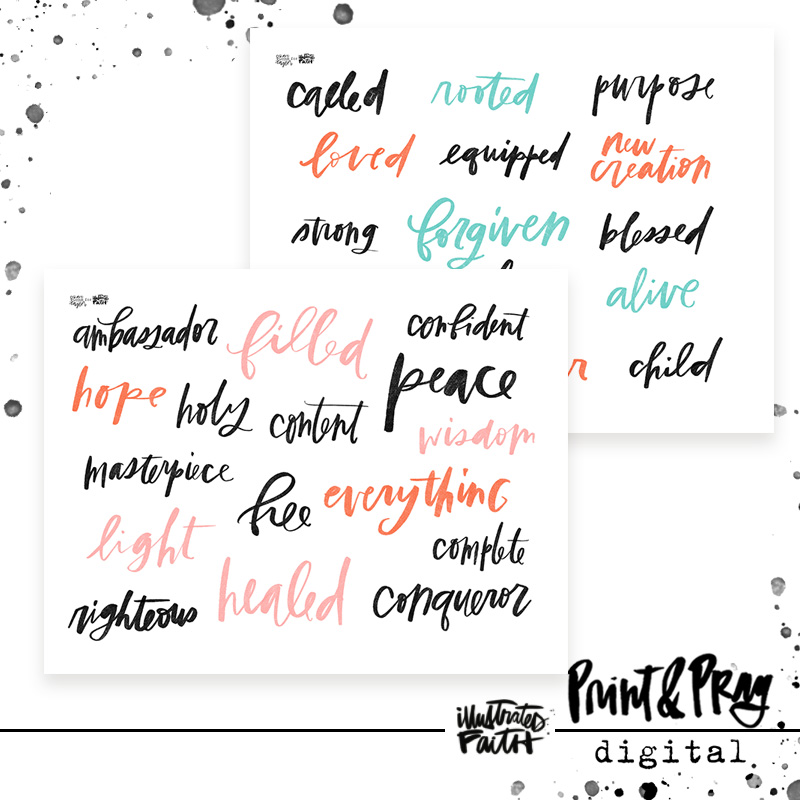 called rooted purpose
loved equipped new
creation
strong forgiven blessed
alive
child
ambassador filled confident
hope holy content peace
wisdom
masterpiece free everything
light complete
righteous healed conqueror
illustrated
FAITH
Print & Pray
digital